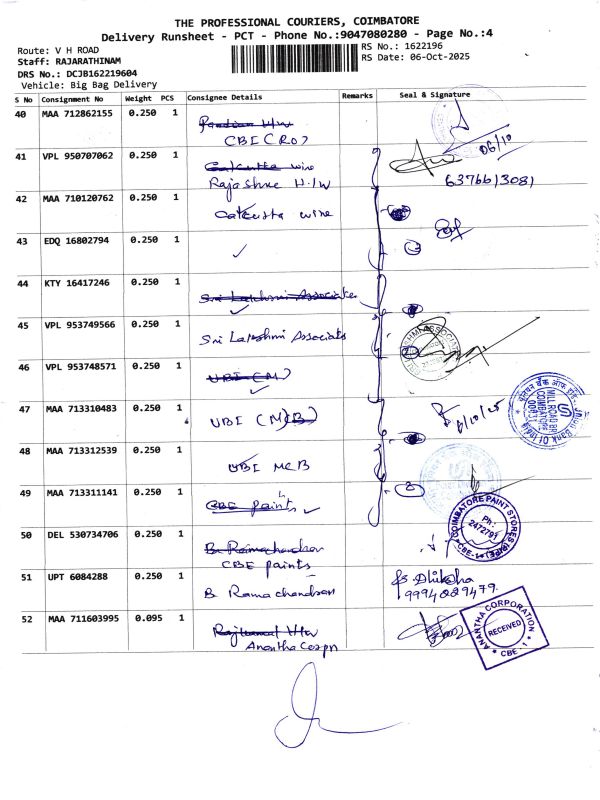 THE PROFESSIONAL COURIERS, COIMBATORE
Delivery Runsheet - PCT - Phone No.:9047080280 - Page No.:4
Route: V H ROAD
Staff: RAJARATHINAM
DRS No.: DCJB162219604
Vehicle: Big Bag Delivery
RS No.: 1622196
RS Date: 06-Oct-2025
S No Consignment No Weight PCS Consignee Details Remarks Seal & Signature
40 MAA 712862155 0.250 1
CBE CROS
06/10
41 VPL 950707062 0.250 1 Calcutta wire
Rajashree H/W
6376613081
42 MAA 710120762 0.250 1 Calcutta wire
43 EDQ 16802794 0.250 1
44 KTY 16417246 0.250 1 Sri Lakshmi Associates
45 VPL 953749566 0.250 1 Sri Lakshmi Associates
46 VPL 953748571 0.250 1 UBI (M)
47 MAA 713310483 0.250 1 UBI (MCB)
6/10/25
Union Bank Of India
MILL ROAD BR
COIMBATORE
48 MAA 713312539 0.250 1 UBI MCB
49 MAA 713311141 0.250 1 CBE paints
COIMBATORE PAINT STORES
Ph:
2472791
50 DEL 530734706 0.250 1 B. Ramachandran
CBE paints
51 UPT 6084288 0.250 1 B Ramachandran
9994029479
52 MAA 711603995 0.095 1
Anantha Corpn
ANANTHA CORPORATION
RECEIVED
* CBE - 1 *